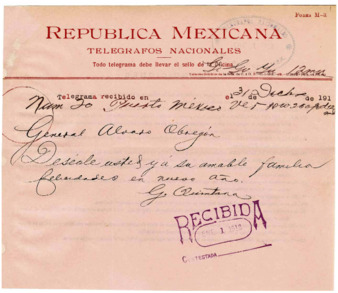 FORMA M-8
REPUBLICA MEXICANA
TELEGRAFOS NACIONALES
Todo telegrama debe llevar el sello de la Oficina
Telegrama recibido en el de de 191
Num 30 Puerto Mexico Ver
General Alvaro Obregón
Deséole usted y á su amable familia
felicidades en nuevo año.
G Quintana
RECIBIDA
CONTESTADA